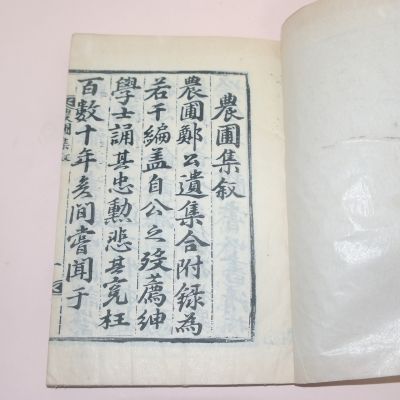 農圃集叙
農圃鄭公遺集合附錄為
若干編盖自公之歿薦紳
學士誦其忠勳悲其冤枉
百數十年矣間嘗聞于
農圃集叙
一